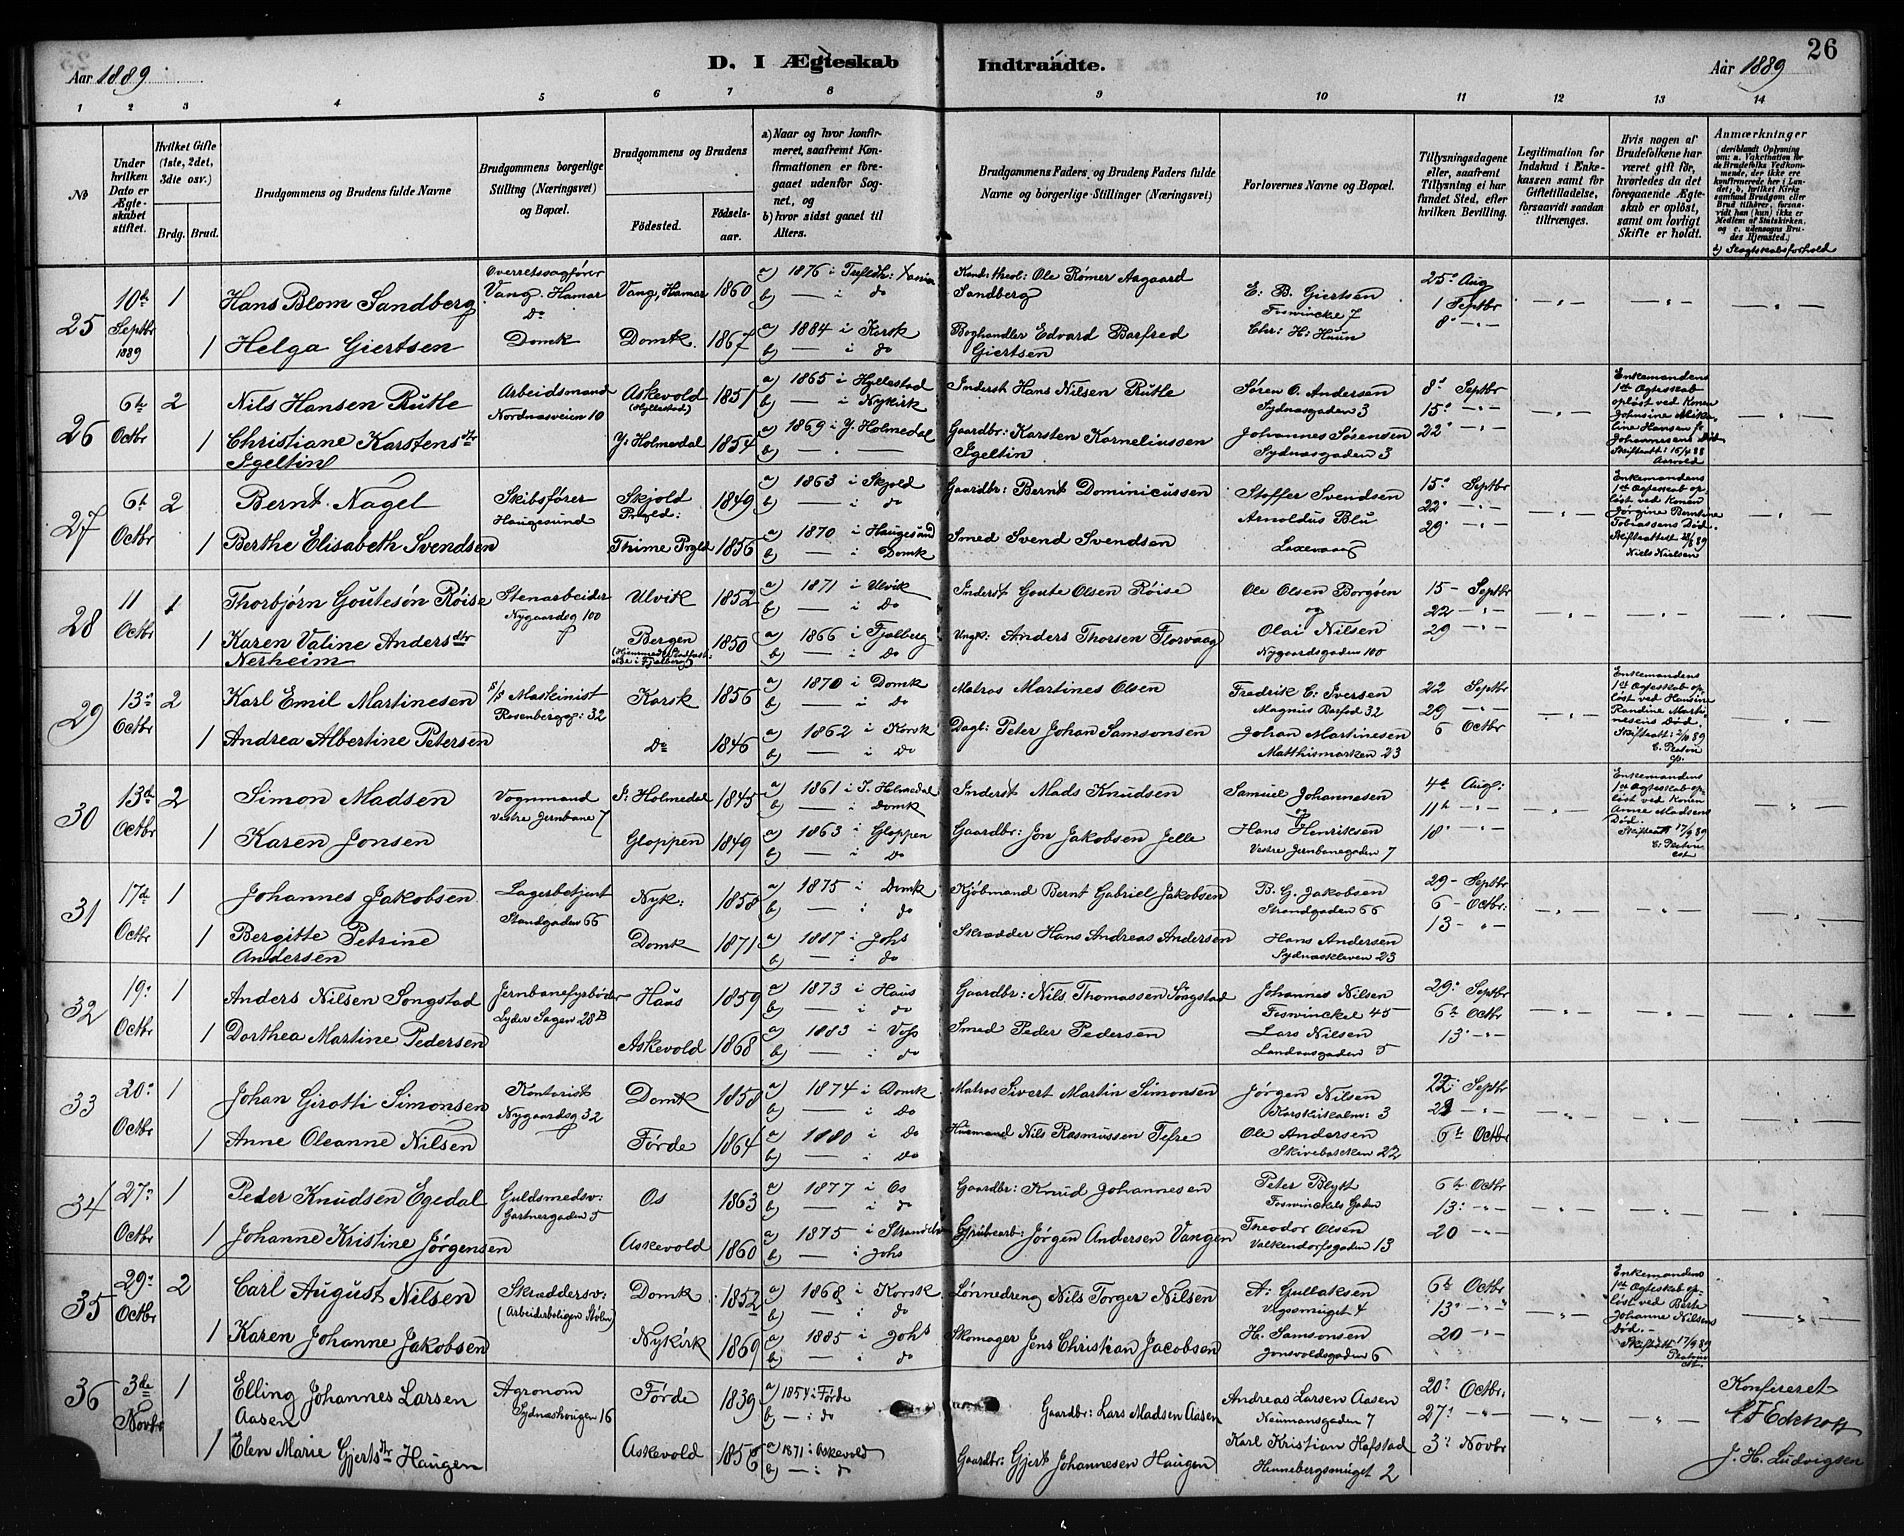 26
D. I Ægteskab Indtraadte.
Aar 1889
Aar 1889
1 2 3 4 5 6 7 8 9 10 11 12 13 14
№
Under hvilken Dato er Ægteskabet stiftet.
Hvilket Gifte (1ste, 2det, 3die osv.)
Brdg. Brud.
Brudgommens og Brudens fulde Navne
Brudgommens borgerlige Stilling (Næringsvei) og Bopæl.
Brudgommens og Brudens
Fødested.
Fødselsaar.
a) Naar og hvor konfirmeret, saafremt Konfirmationen er foregaaet udenfor Sognet, og
b) hvor sidst gaaet til Alters.
Brudgommens Faders og Brudens Faders fulde Navne og borgerlige Stillinger (Næringsvei)
Forlovernes Navne og Bopæl.
Tillysningsdagene eller, saafremt Tillysning ei har fundet Sted, efter hvilken Bevilling.
Legitimation for Indskud i Enkekassen samt for Giftetilladelse, forsaavidt saadan tiltrænges.
Hvis nogen af Brudefolkene har været gift før, hvorledes da det foregaaende Ægteskab er opløst, samt om lovligt Skifte er holdt.
Anmærkninger
b) Slægtskabsforhold
25
10de Septbr 1889
1
Hans Blom Sandberg
Overretssagfører Vang. Hamar
Vang, Hamar
1860
a) 1876 i Trefdh: Xania
b) — i do
Kand: theol: Ole Rømer Aagaard Sandberg
E: B. Giertsen
Foswinckel 7
Chr: H: Huun
25de Aug
1 Septbr
8 —"—
1
Helga Giertsen
Do
Domk
Domk.
1867
a) 1884 i Korsk
b) — i do
Boghandler Edvard Barfred Giertsen
26
6te Octbr
2
Nils Hansen Rutle
Arbeidsmand
Nordnæsveien 10
Askevold
(Hyllestad)
1851
a) 1865 i Hyllestad
b) — i Nykirk
Inderst Hans Nilsen Rutle
Søren O. Andersen
Sydnæsgaden 3
8de Septbr
15de —"—
22 —"—
Enkemandens 1ste Ægteskab opløst ved Konen Johnsine Mikaline Hansen f. Johannesens Død
1
Christiane Karstensdtr Igeltin
Y: Holmedal
1854
a) 1869 i Y. Holmedal
b) — . —
Gaardbr: Karsten Korneliussen Igeltin
Johannes Sørensen
Sydnæsgaden 3
27
6te Octbr
2
Bernt Nagel
Skibsfører
Haugesund
Skjold Prgld:
1849
a) 1863 i Skjold
b) — i do
Gaardbr: Bernt Dominicussen
Stoffer Svendsen
Arnoldus Blu
Laxevaag
15de Septbr
22 —"—
29 —"—
Enkemandens 1ste Ægteskab opløst ved Konen Jørgine Berntine Tobiassens Død.
Niels Nielsen
1
Berthe Elisabeth Svendsen
Thime Prgld
1856
a) 1870 i Haugesund
b) — i Domk
Smed Svend Svendsen
28
11 Octbr
1
Thorbjørn Goutesøn Røise
Stenarbeider
Nygaardsg 100
Ulvik
1852
a) 1871 i Ulvik
b) — i Do
Inderst Goute Olsen Røise
Ole Olsen Borgøen
og
Olai Nilsen
Nygaardsgaden 100
15 — Septbr
22 —"—
29 —"—
1
Karen Valine Andersdtr Nerheim
Bergen
1850
a) 1866 i Fjelberg
b) — i Do
Ungk: Anders Thorsen Florvaag
29
13de Octbr
2
Karl Emil Martinesen
s/s Maskinist
Rosenbergsg: 32
Korsk
1856
a) 1870 i Domk
b) — i Do
Matros Martines Olsen
Fredrik C: Iversen
Magnus Barfod 32
22 Septbr
29 —"—
6 Octbr
Enkemandens 1ste Ægteskab opløst ved Hansine Randine Martinesens Død.
Skifteatt: 2/10 89
1
Andrea Albertine Petersen
Do
1846
a) 1862 i Korsk
b) — i Do
Dagl: Peter Johan Samsonsen
Johan Martinesen
Matthismarken 23
30
13de Octbr
2
Simon Madsen
Vognmand
Vestre Jernbane 7
I: Holmedal
1845
a) 1861 i I. Holmedal
b) — i Domk
Inderst Mads Knudsen
Samuel Johannesen
og
Hans Henriksen
Vestre Jernbanegaden 7
4de Augt:
11te —"—
18 —"—
Enkemandens 1ste Ægteskab opløst ved Konen Anne Madsens Død.
Skifteatt 17/9 89
1
Karen Jonsen
Gloppen
1849
a) 1863 i Gloppen
b) — i Do
Gaardbr: Jon Jakobsen Jelle
31
17de Octbr
1
Johannes Jakobsen
Lagerbetjent
Standgaden 66
Nyk:
1858
a) 1875 i Domk
b) — i do
Kjøbmand Bernt Gabriel Jakobsen
B. G. Jakobsen
Strandgaden 66
29 — Septbr
6 — Octbr:
13 —"—
1
Bergitte Petrine Andersen
Domk
1871
a) 1887 i Johs
b) — i do
Skrædder Hans Andreas Andersen
Hans Andersen
Sydnæskleven 23
32
19de Octbr
1
Anders Nilsen Songstad
Jernbanefyrbøder
Lyder Sagen 28B
Haus
1859
a) 1873 i Haus
b) — i do
Gaardbr: Nils Thomassen Songstad
Johannes Nilsen
Foswinckel 45
29de Septbr
6te Octbr
13 —"—
1
Dorthea Martine Pedersen
Askevold
1868
a) 1883 i Voss
b) — i do
Smed Peder Pedersen
Lars Nilsen
Landaasgaden 5
33
20de Octbr
1
Johan Girotti Simonsen
Kontorist
Nygaardsg 32
Domk
1858
a) 1874 i Domk
b) — i Do
Matros Sivert Martin Simonsen
Jørgen Nilsen
Korskirkealm: 3
22 Septbr
29 —"—
6te Octbr
1
Anne Oleanne Nilsen
Førde
1864
a) 1880 i Do
b) — i Do
Husmand Nils Rasmussen Tefre
Ole Andersen
Skivebakken 22
34
27de Octbr
1
Peder Knudsen Egedal
Guldsmedsv:
Gartnergaden 5
Os
1863
a) 1877 i Os
b) — i do
Gaardbr: Knud Johannesen
Peter Blytt
Foswinckels Gaden
6te Octbr
13 —"—
20 —"—
1
Johanne Kristine Jørgensen
Askevold
1860
a) 1875 i Strandebm
b) — i Johs
Grubearb: Jørgen Andersen Vangen
Theodor Olsen
Valkendorfsgaden 13
35
29de Octbr
2
Carl August Nilsen
Skræddersv:
(Arbeiderboligen Stølen)
Domk
1852
a) 1868 i Korsk
b) — i do
Lønnedreng Nils Torger Nilsen
A: Gullaksen
Vegssmuget 4
6te Octbr
13 —"—
20 —"—
Enkemandens 1ste Ægteskab opløst ved Berte Johanne Nilsens Død.
Skifteatt 17/9 89
1
Karen Johanne Jakobsen
Nykirk
1869
a) 1885 i Johs
b) — i do
Skomager Jens Christian Jacobsen
H. Samsonsen
Jonsvoldsgaden 6
36
3de Novbr
1
Elling Johannes Larsen Aasen
Agronom
Sydnæshaugen 16
Førde
1839
a) 1854 i Førde
b) — i do
Gaardbr: Lars Madsen Aasen
Andreas Larsen Aasen
Neumansgaden 7
20de Octbr.
27 —"—
3de Novbr
Konfereret
J. H. Ludvigsen
1
Elen Marie Gjertsdtr Haugen
Askevold
1856
a) 1871 i Askevold
b) — i do
Gaardbr: Gjert Johannesen Haugen
Karl Kristian Hafstad
Hinnebergsmuget 2